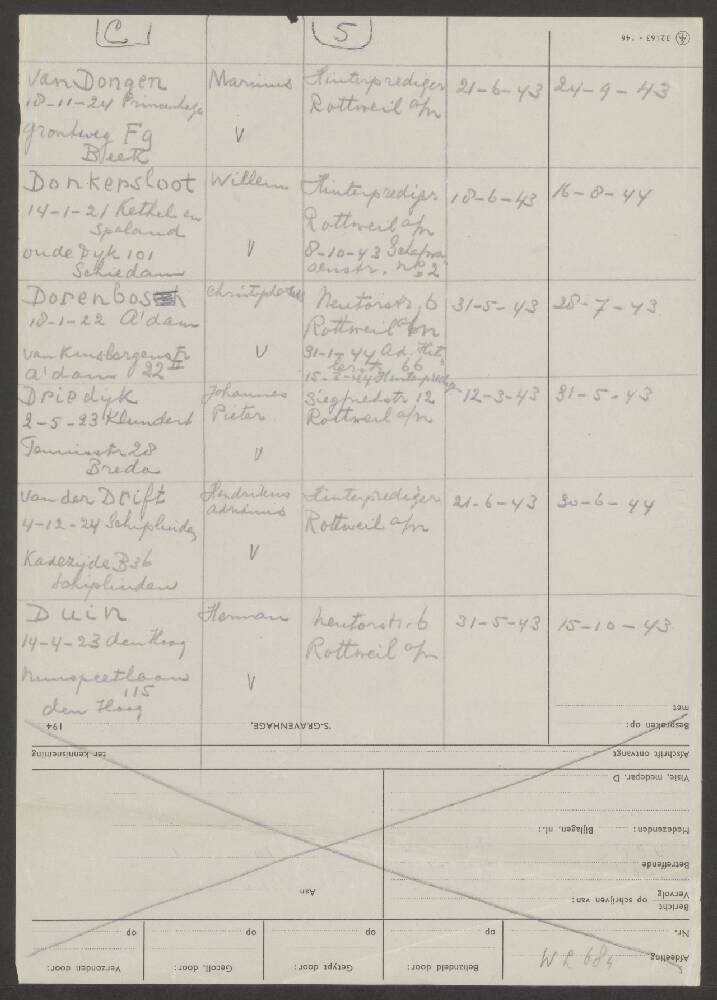 C 5
32163 - '46
Van Dongen Marinus Hinterprediger 21-6-43 24-9-43
18-11-24 Princenhage Rottweil a/n
V
Beek
Donkersloot Willem Hinterpredigr 18-6-43 16-8-44
14-1-21 Kethel en Rottweil a/n
Spaland
oude Dyk 101 V 8-10-43
Schiedam
Dorenbos Neutorstr. 6 31-5-43 28-7-43
18-1-22 A'dam Rottweil a/n
van Kinsbergenstr V 31-1-44 Ad. Hit
A'dam 22 II lerstr. 66
Driedyk Johannes Siegfriedstr 12 12-3-43 31-5-43
2-5-23 Klundert Pieter Rottweil a/n
28 V
Breda
van der Drift Hendrikus Hinterprediger 21-6-43 30-6-44
4-12-24 Adrianus Rottweil a/n
Kadezijde B36 V
Duin Herman Neutorstr. 6 31-5-43 15-10-43
14-4-23 den Haag Rottweil a/n
Nunspeetlaan V
115
den Haag
met
Besproken op:
'S-GRAVENHAGE, 194
Afschrift ontvangt ter kennisneming
Visie, medepar. D
Medezenden: Bijlagen, nl.:
Betreffende
Vervolg
Bericht op schrijven van:
Aan
Nr. op op op op
Afdeeling Behandeld door: Getypt door: Gecoll. door: Verzonden door: